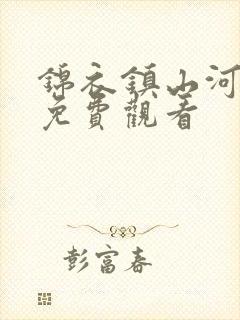 錦衣鎮山河
免費觀看
彭富春